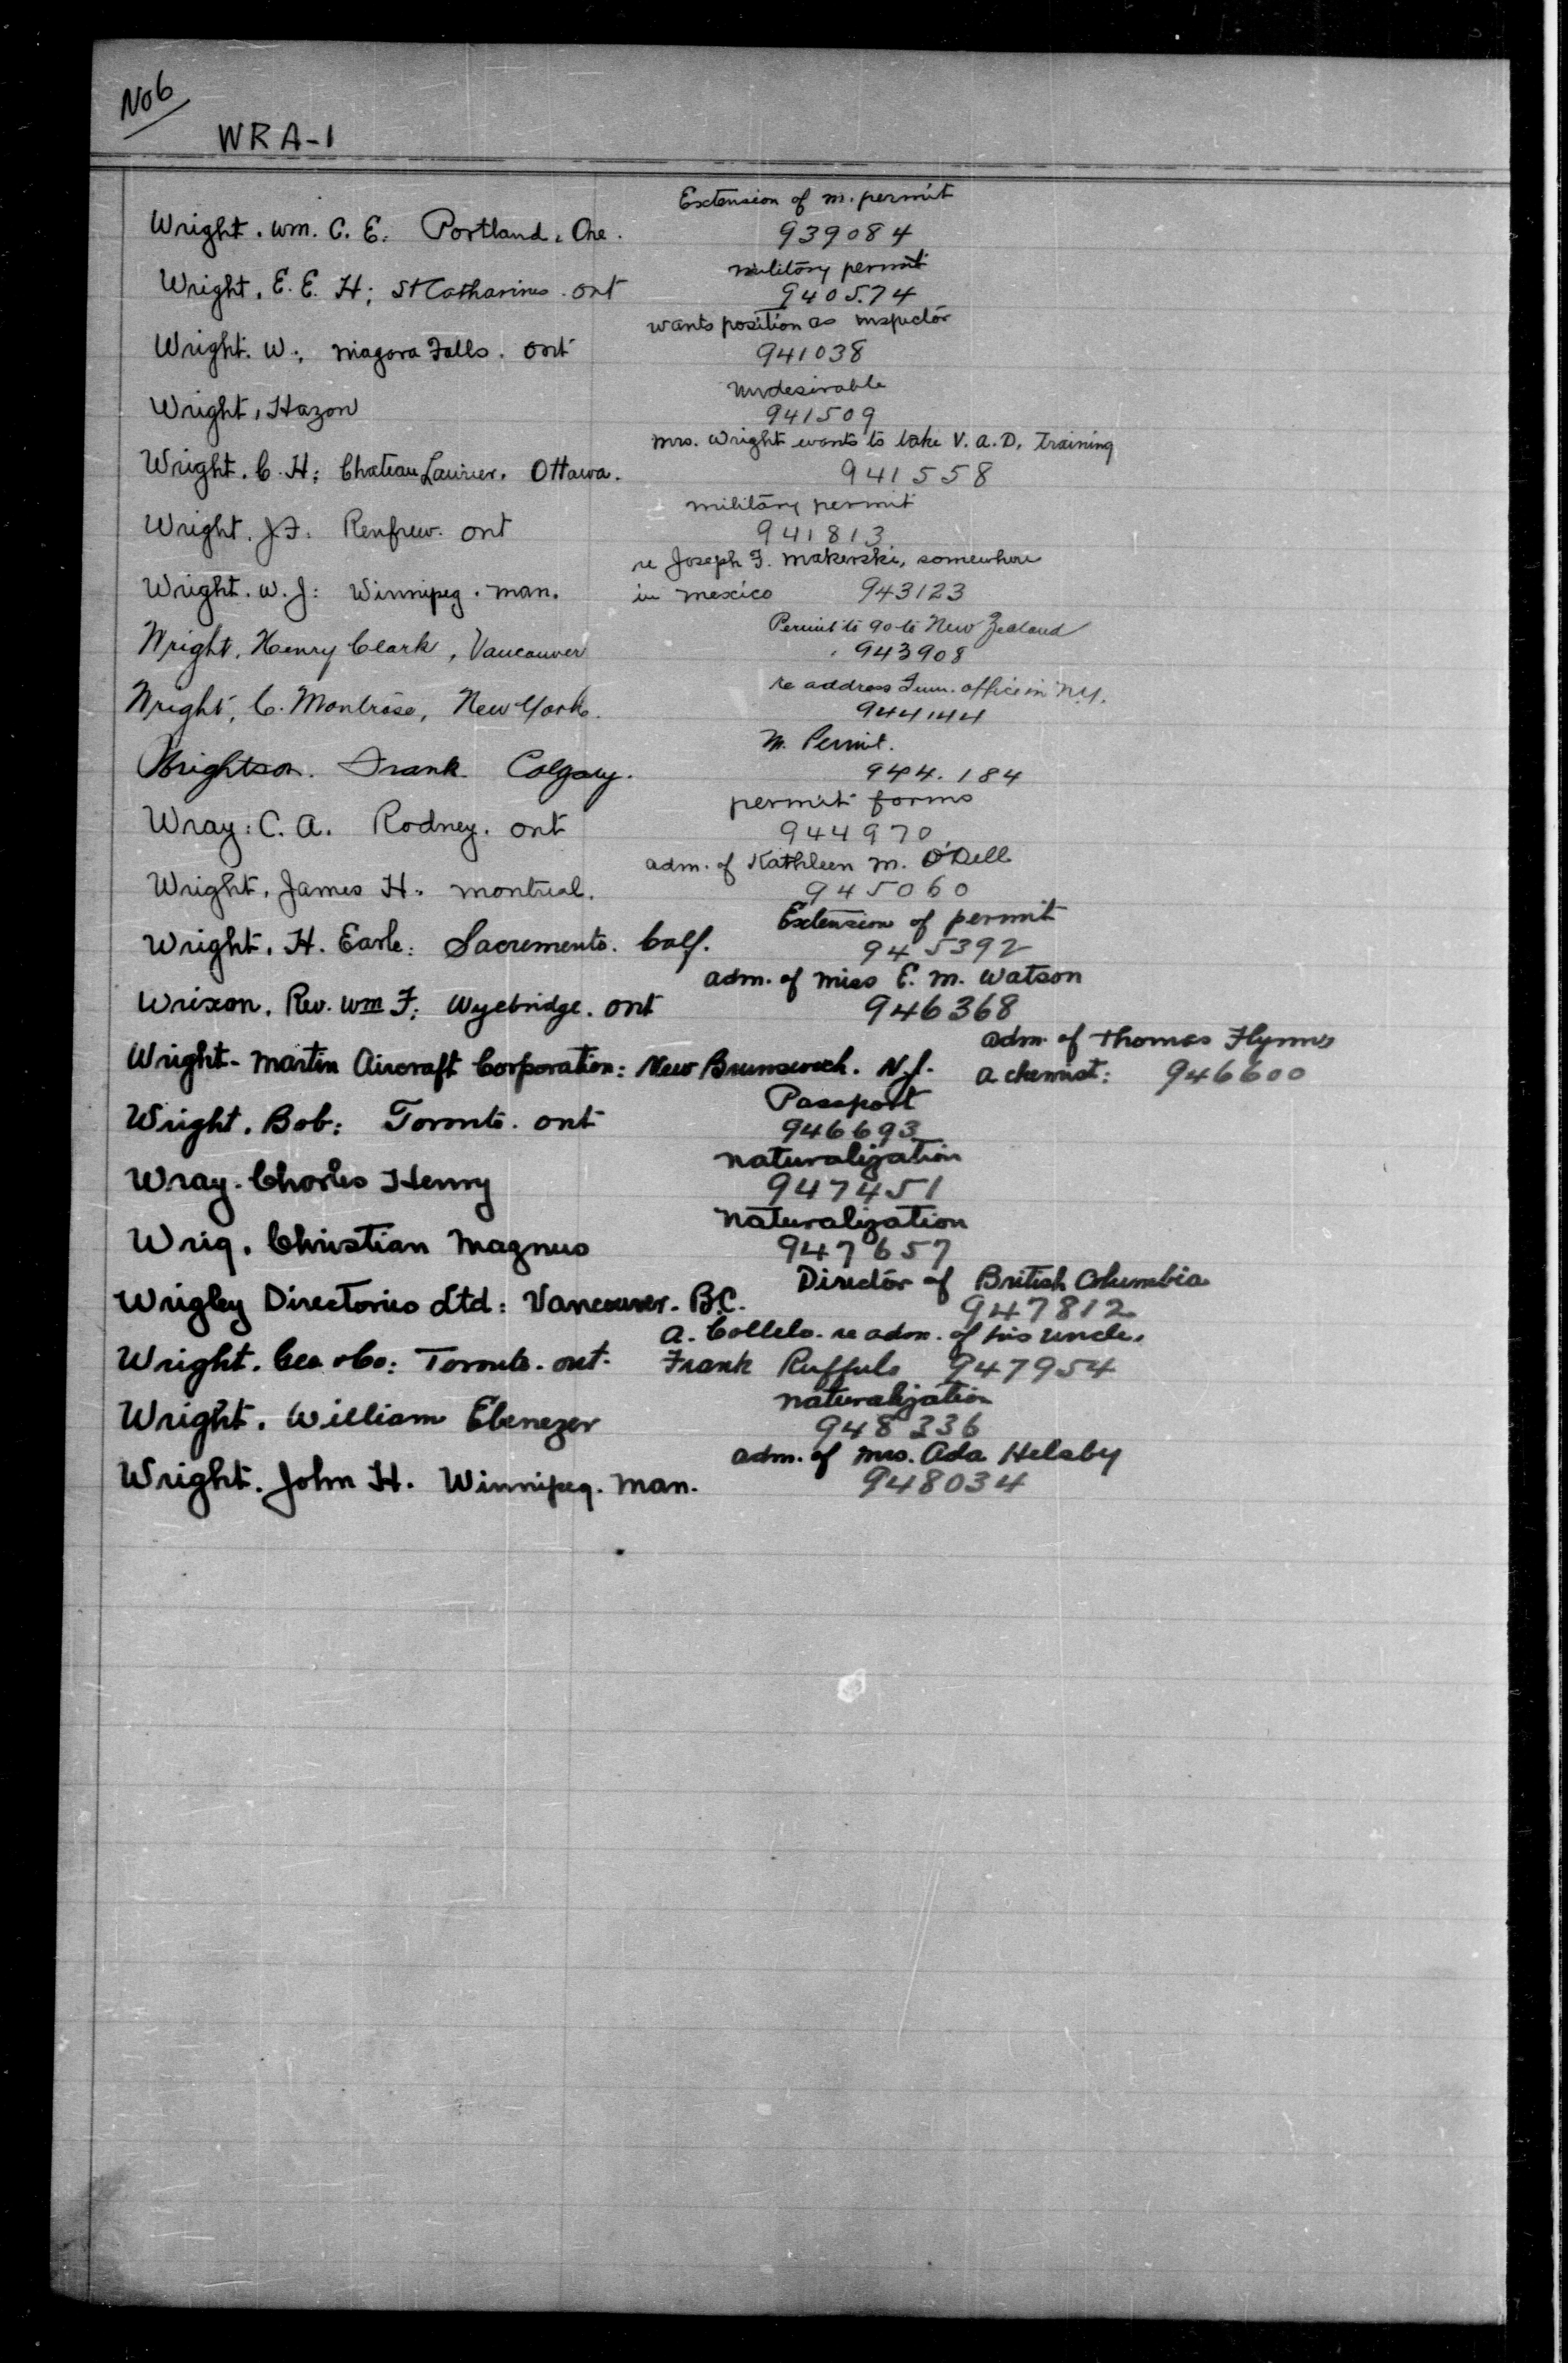 No 6
WRA-1
Extension of m. permit
Wright. Wm. C. E: Portland, Ore. 939084
military permit
Wright. E. E. H; St Catharines. ont 940574
wants position as inspector
Wright. W; Niagara Falls. ont 941038
undesirable
Wright, Hazon 941509
Mrs. Wright wants to take V.A.D. Training
Wright. C. H: Chateau Laurier. Ottawa. 941558
military permit
Wright. J.F. Renfrew. ont 941813
re Joseph F. Makerski, somewhere
Wright. W. J: Winnipeg. man. in mexico 943123
Permit to go to New Zealand
Wright, Henry Clark, Vancouver 943908
re address Imm. office in N.Y.
Wright, C. Montrose, New York. 944144
M. Permit.
Wrightson. Frank Calgary. 944.184
permit forms
Wray: C. A. Rodney. ont 944970
adm. of Kathleen M. O'Dell
Wright. James H. montreal. 945060
Extension of permit
Wright. H. Earle: Sacremento. Calf. 945392
adm. of Miss E. M. Watson
Wrixon. Rev. Wm F: Wyebridge. ont 946368
adm. of Thomas Flynn
Wright-Martin Aircraft Corporation: New Brunswick. N.J. a chemist: 946600
Passport
Wright. Bob: Toronto. ont 946693
naturalization
Wray. Charles Henry 947451
naturalization
Wrig. Christian Magnus 947657
Director of British Columbia
Wrigley Directories Ltd: Vancouver. B.C. 947812
A. Collelo. re adm. of his uncle,
Wright. Geo & Co: Toronto. ont. Frank Ruffulo 947954
naturalization
Wright. William Ebenezer 948336
adm. of Mrs. Ada Helsby
Wright. John H. Winnipeg. man. 948034